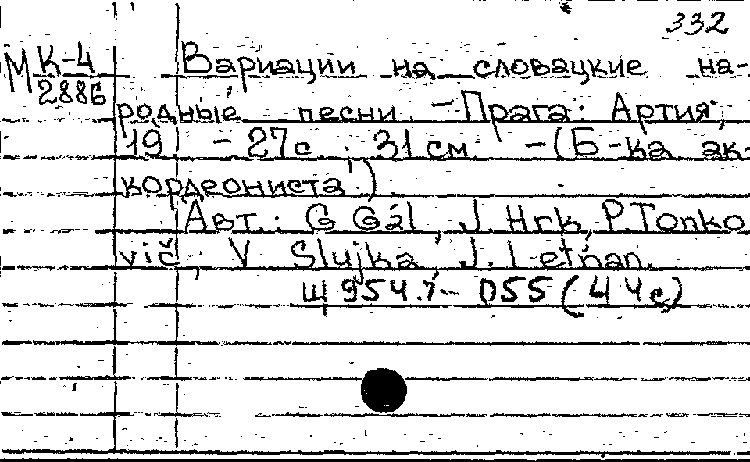 332
МК-4 Вариации на словацкие на-
2886
родные песни. - Прага: Артия,
19 - 27с ; 31 см. - (Б-ка ак-
кордеониста).
Авт.: G Gál, J. Hrk, P. Tonko
vič, V Slujka, J. Letňan.
Щ954.7- 055 (4Че)